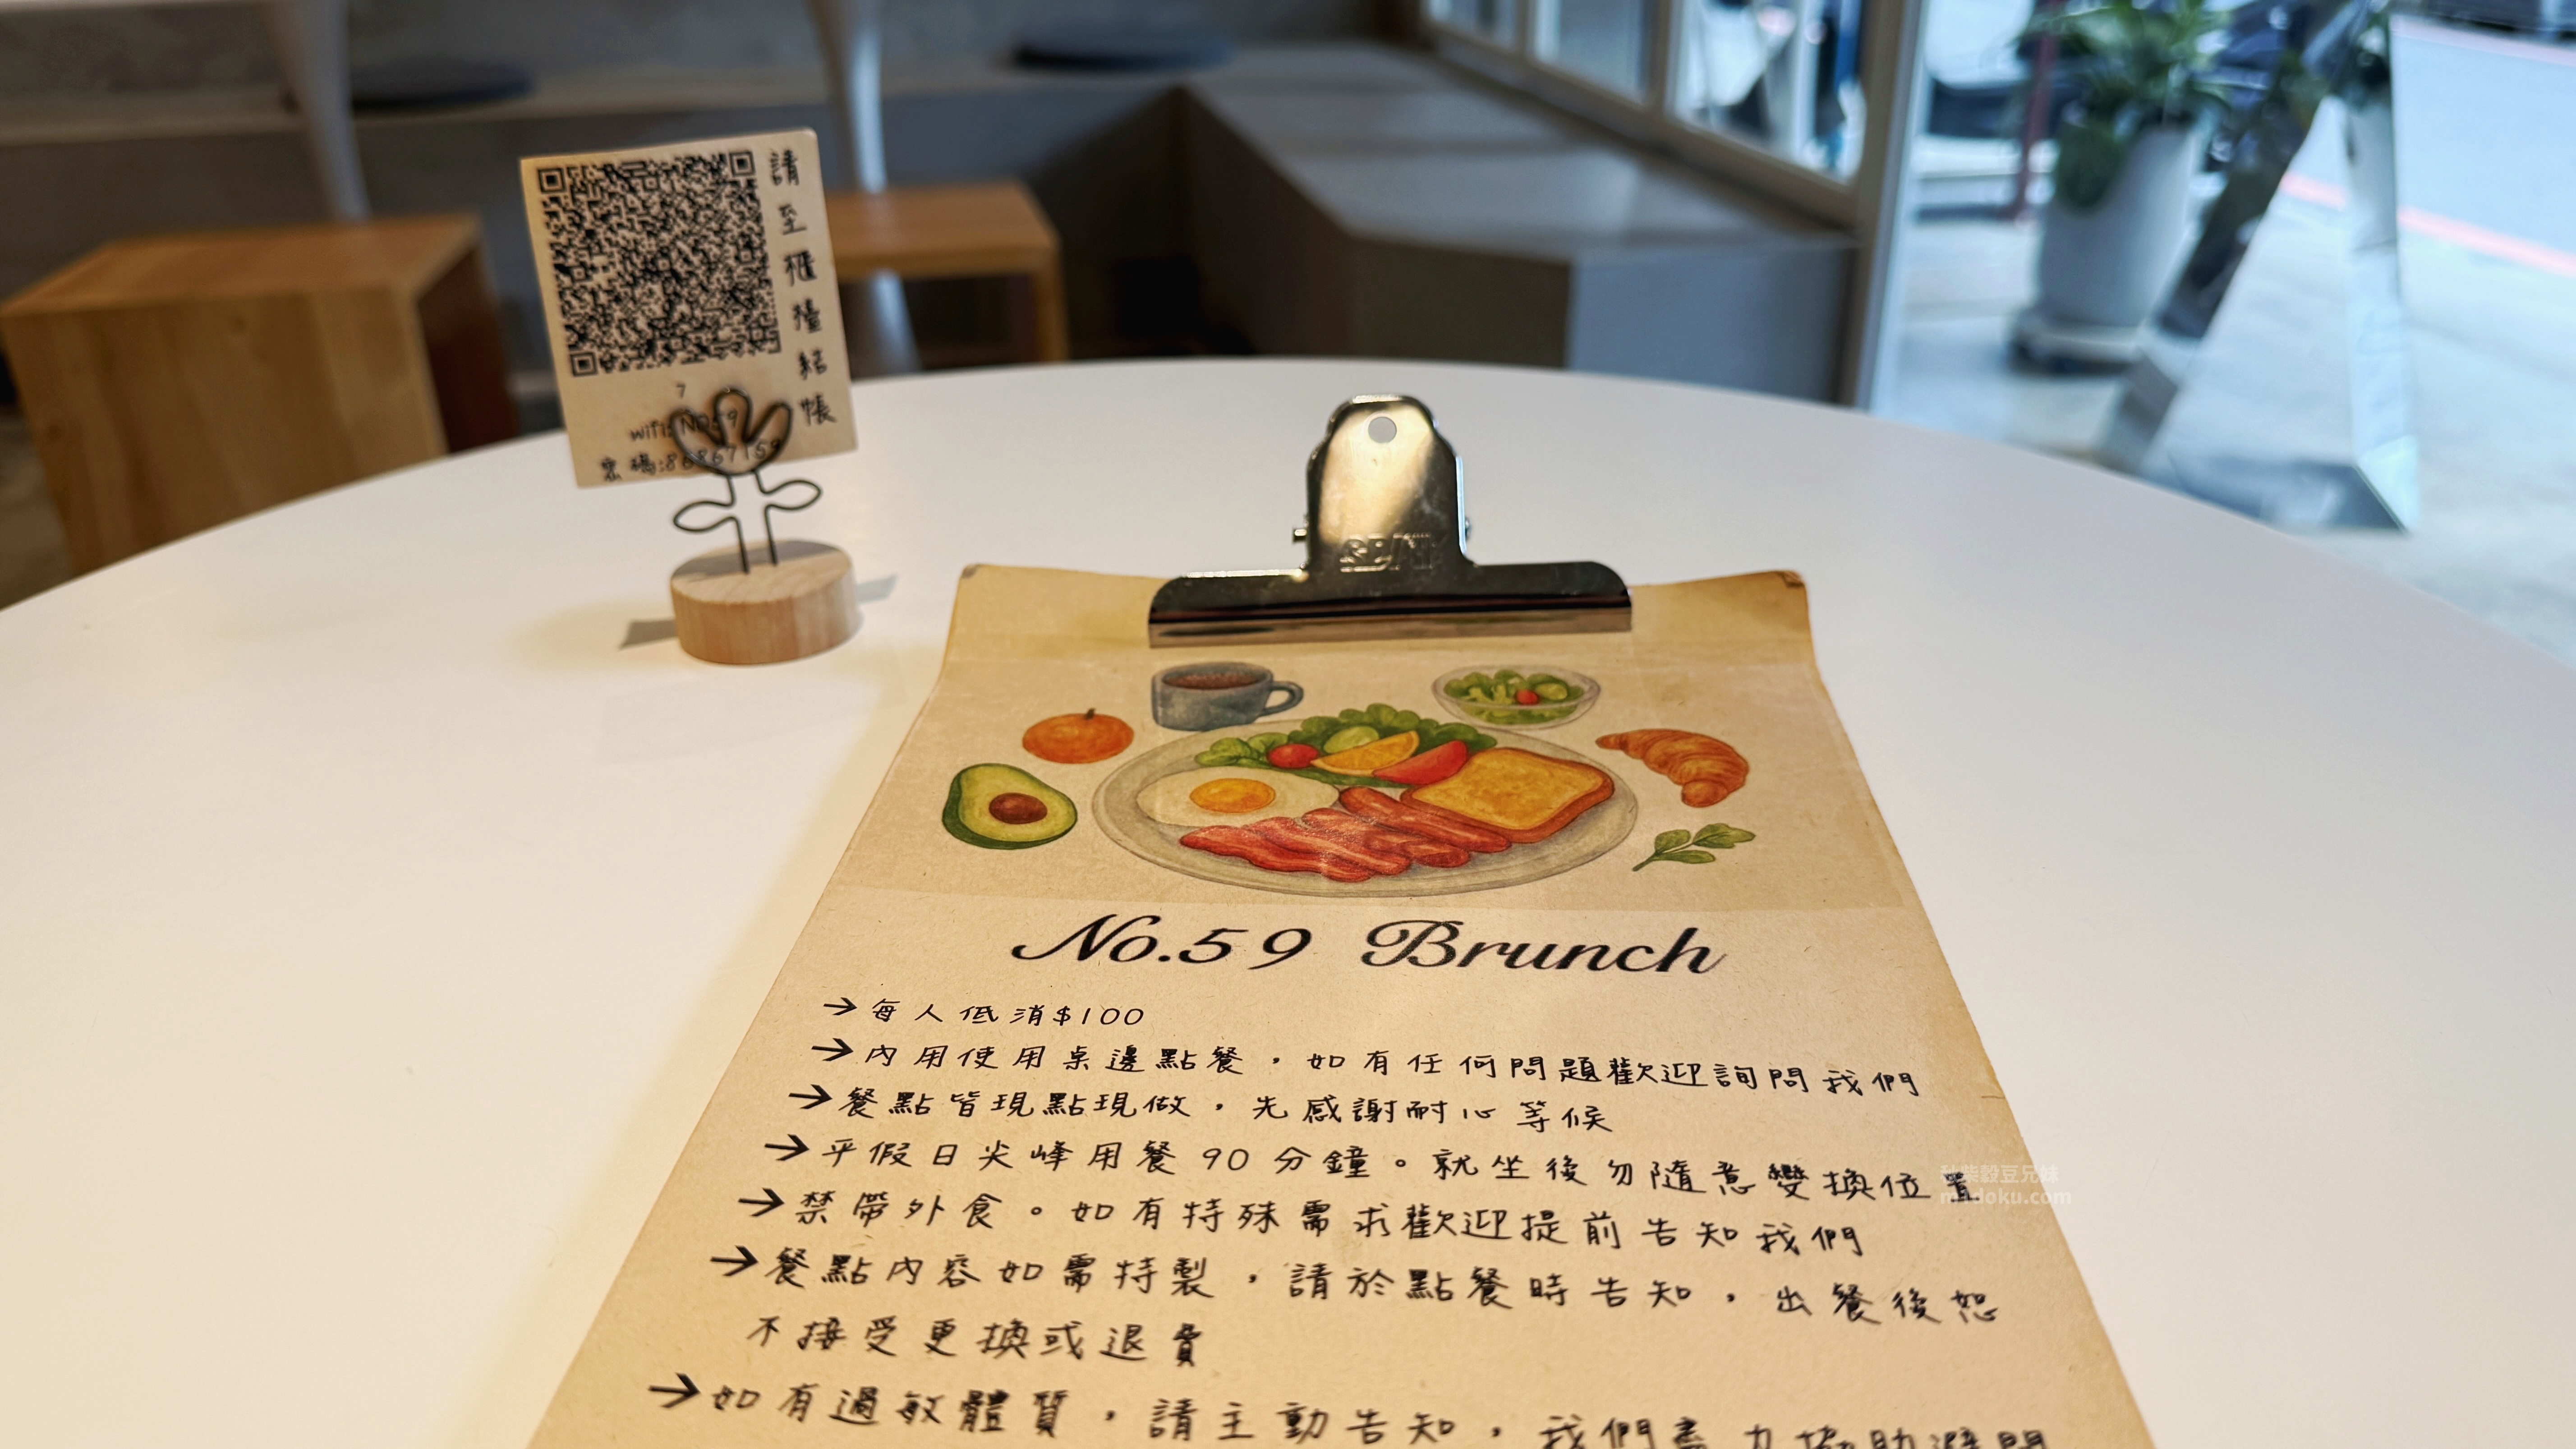 請至櫃檯結帳
7
wifi:NO59
密碼:86867159
No.59 Brunch
→每人低消$100
→內用使用桌邊點餐，如有任何問題歡迎詢問我們
→餐點皆現點現做，先感謝耐心等候
→平假日尖峰用餐90分鐘。就坐後勿隨意變換位置
→禁帶外食。如有特殊需求歡迎提前告知我們
→餐點內容如需特製，請於點餐時告知，出餐後恕
不接受更換或退費
→如有過敏體質，請主動告知，我們盡力協助避開
秋柴穀豆兄妹
midoku.com